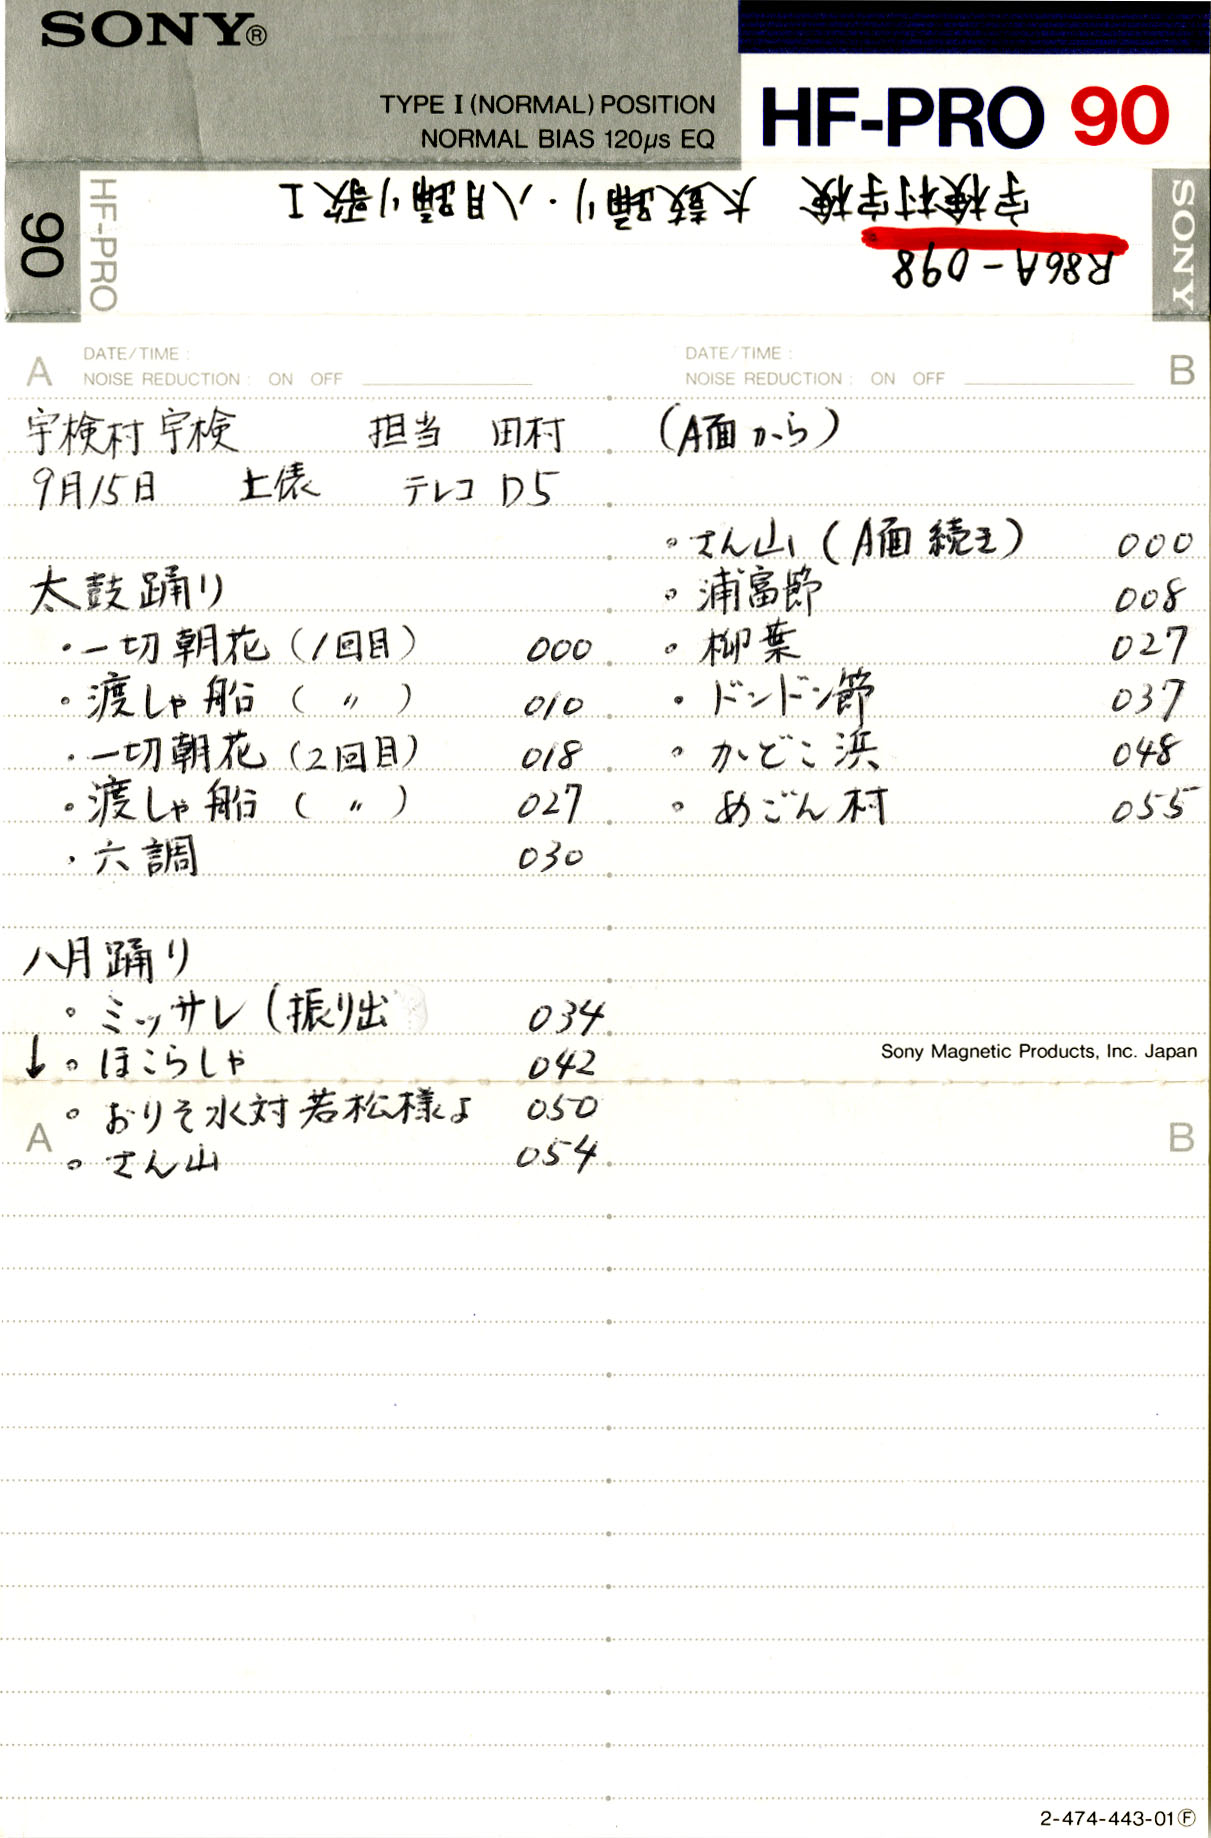 SONY®
TYPE I (NORMAL) POSITION
NORMAL BIAS 120μs EQ
HF-PRO 90
90
HF-PRO
R86A-098
宇検村宇検 太鼓踊り・八月踊り歌 I
SONY
A
DATE/TIME :
NOISE REDUCTION : ON OFF
宇検村 宇検 担当 田村
9月15日 土俵 テレコ D5
太鼓踊り
・一切朝花 (1回目) 000
・渡しゃ船 ( 〃 ) 010
・一切朝花 (2回目) 018
・渡しゃ船 ( 〃 ) 027
・六調 030
八月踊り
。ミッサレ (振り出 034
↓。ほこらしゃ 042
。おりそ水対若松様よ 050
A
。さん山 054
DATE/TIME :
NOISE REDUCTION : ON OFF
B
(A面から)
。さん山 (A面続き) 000
。浦富節 008
。柳葉 027
・ドンドン節 037
。かどこ浜 048
。めごん村 055
Sony Magnetic Products, Inc. Japan
B
2-474-443-01Ⓕ